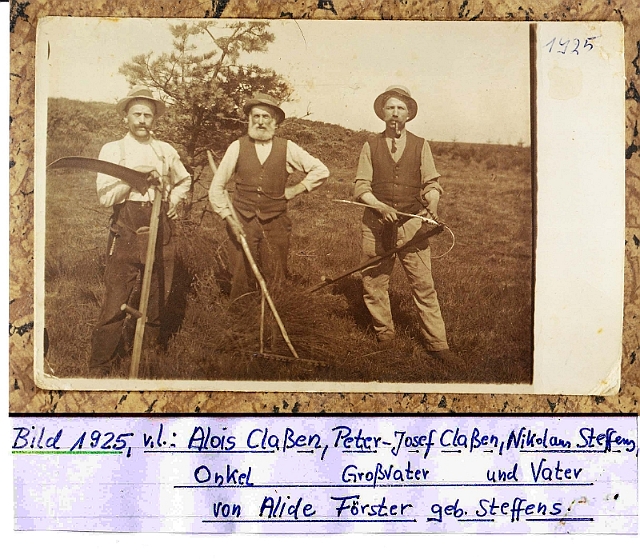 1925
Bild 1925, v.l.: Alois Claßen, Peter-Josef Claßen, Nikolaus Steffens,
Onkel Großvater und Vater
von Alide Förster geb. Steffens.